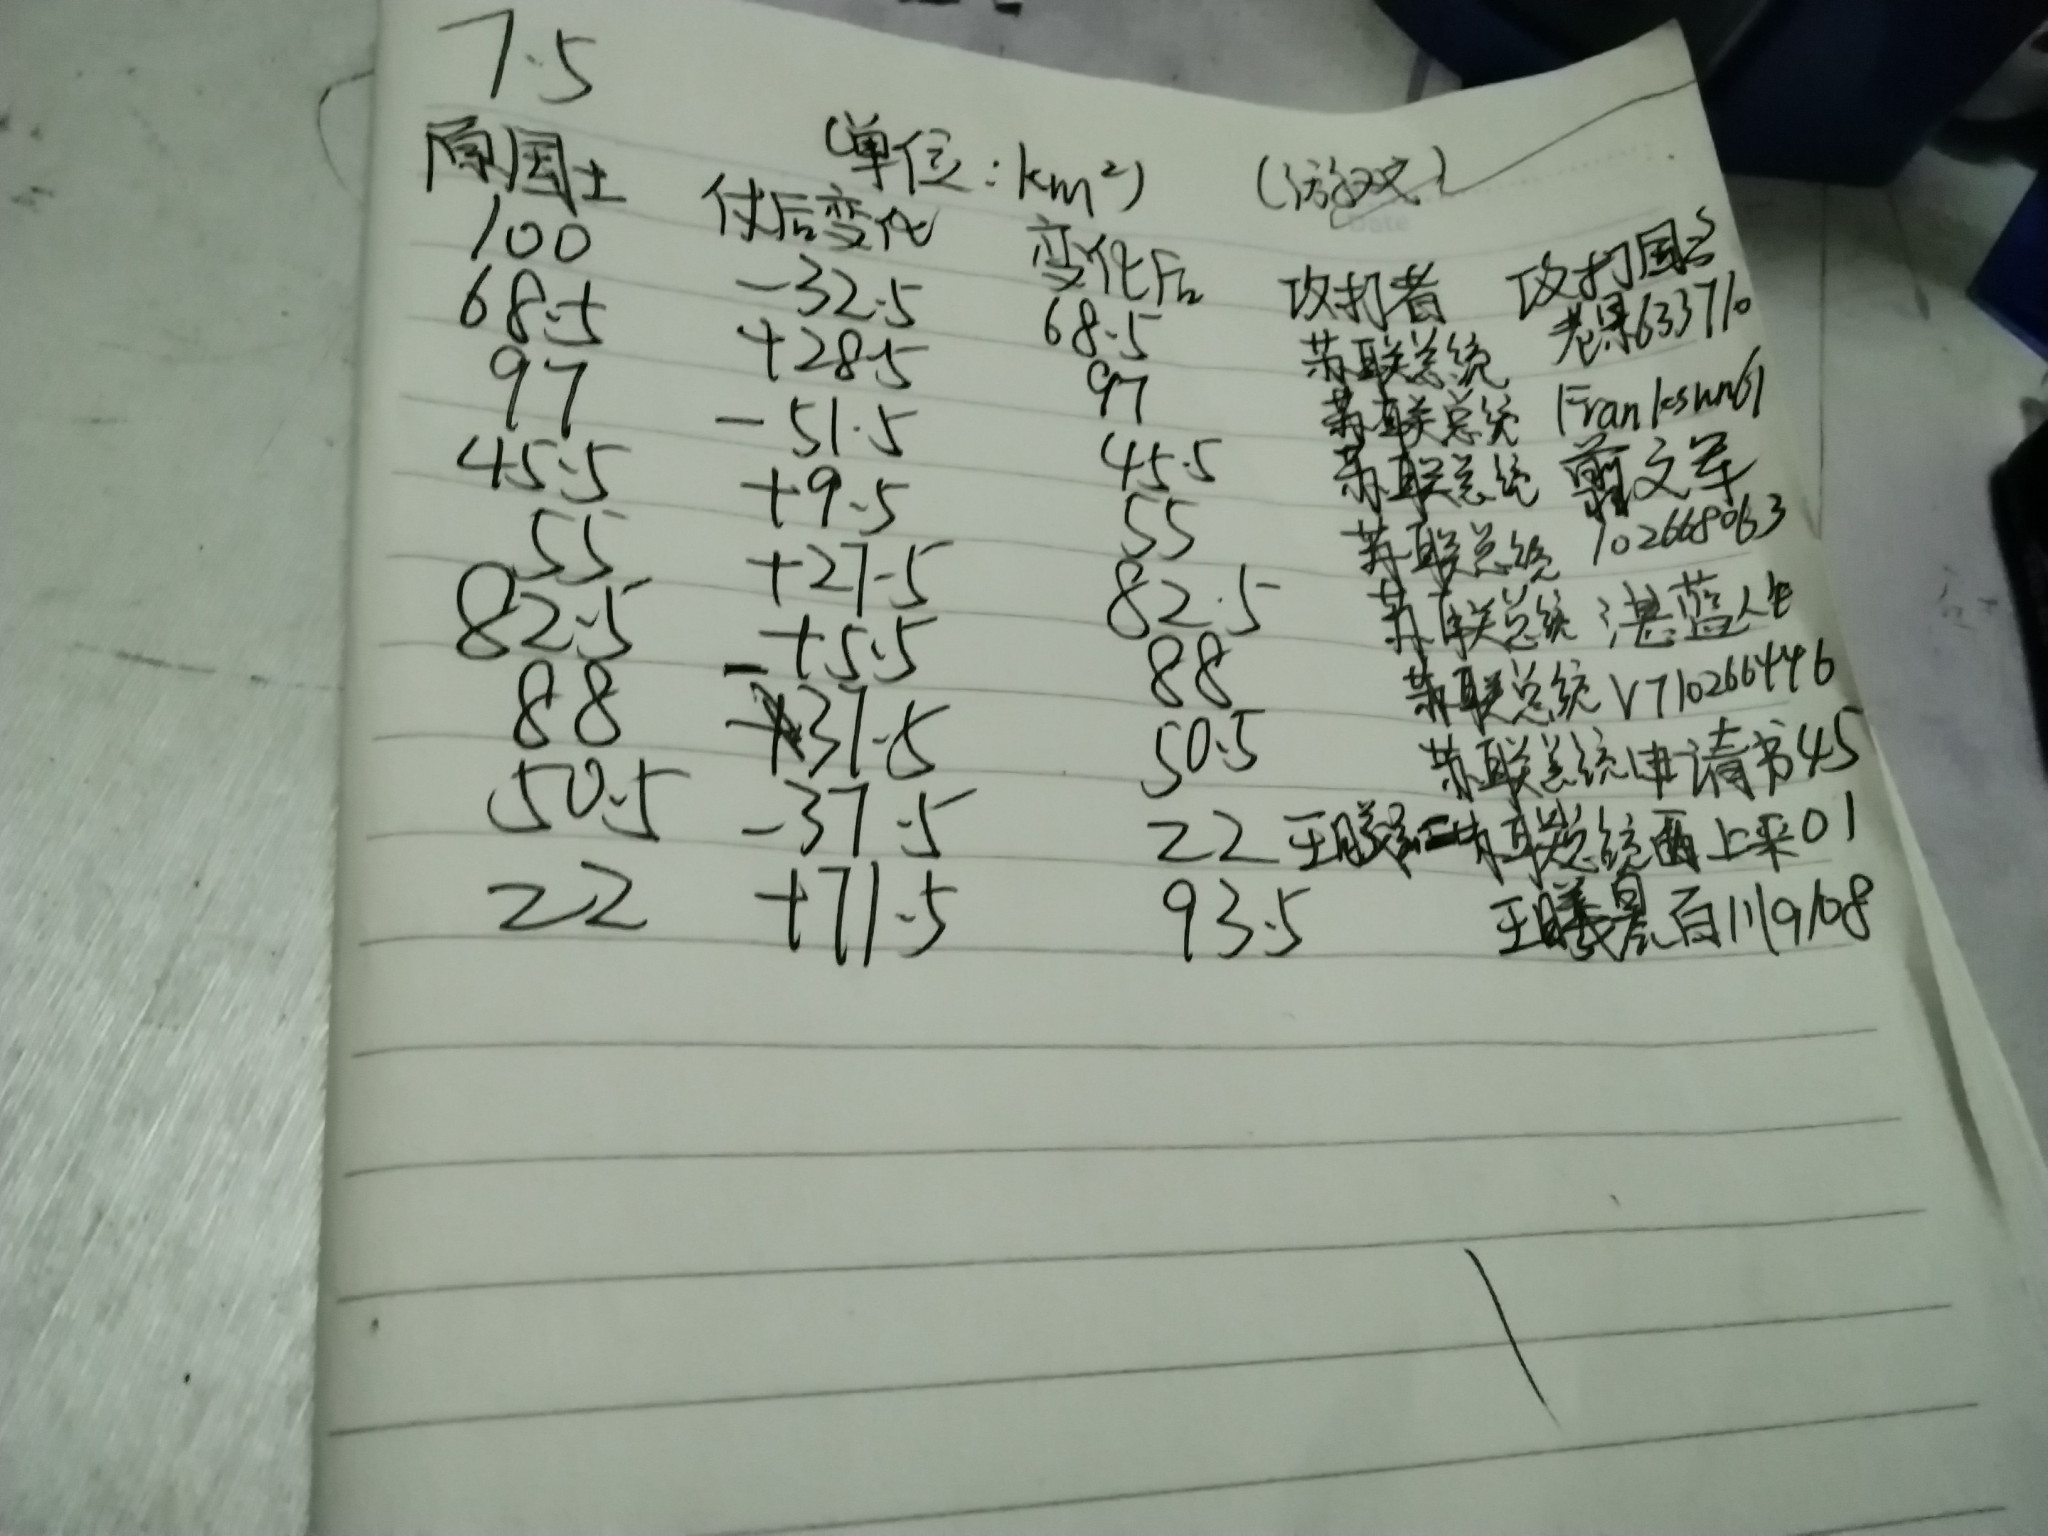 7.5
原国土 (单位:km²) (游戏)
付后变化 变化后 攻打者 攻打国家
100 -32.5 68.5 苏联总统 老果633710
68.5 +28.5 97 苏联总统 Franksun61
97 -51.5 45.5 苏联总统 文军
45.5 +9.5 55 苏联总统 102668063
55 +27.5 82.5 苏联总统 湛蓝人生
82.5 +5.5 88 苏联总统 V710266446
88 -37.5 50.5 苏联总统 申请书45
50.5 -37.5 22 苏联总统 上来01
22 +71.5 93.5 王曦晨 百川9108